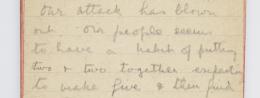 Our attack has blown
out. Our people seems
to have a habit of putting
two & two together expecting
to make five & then find